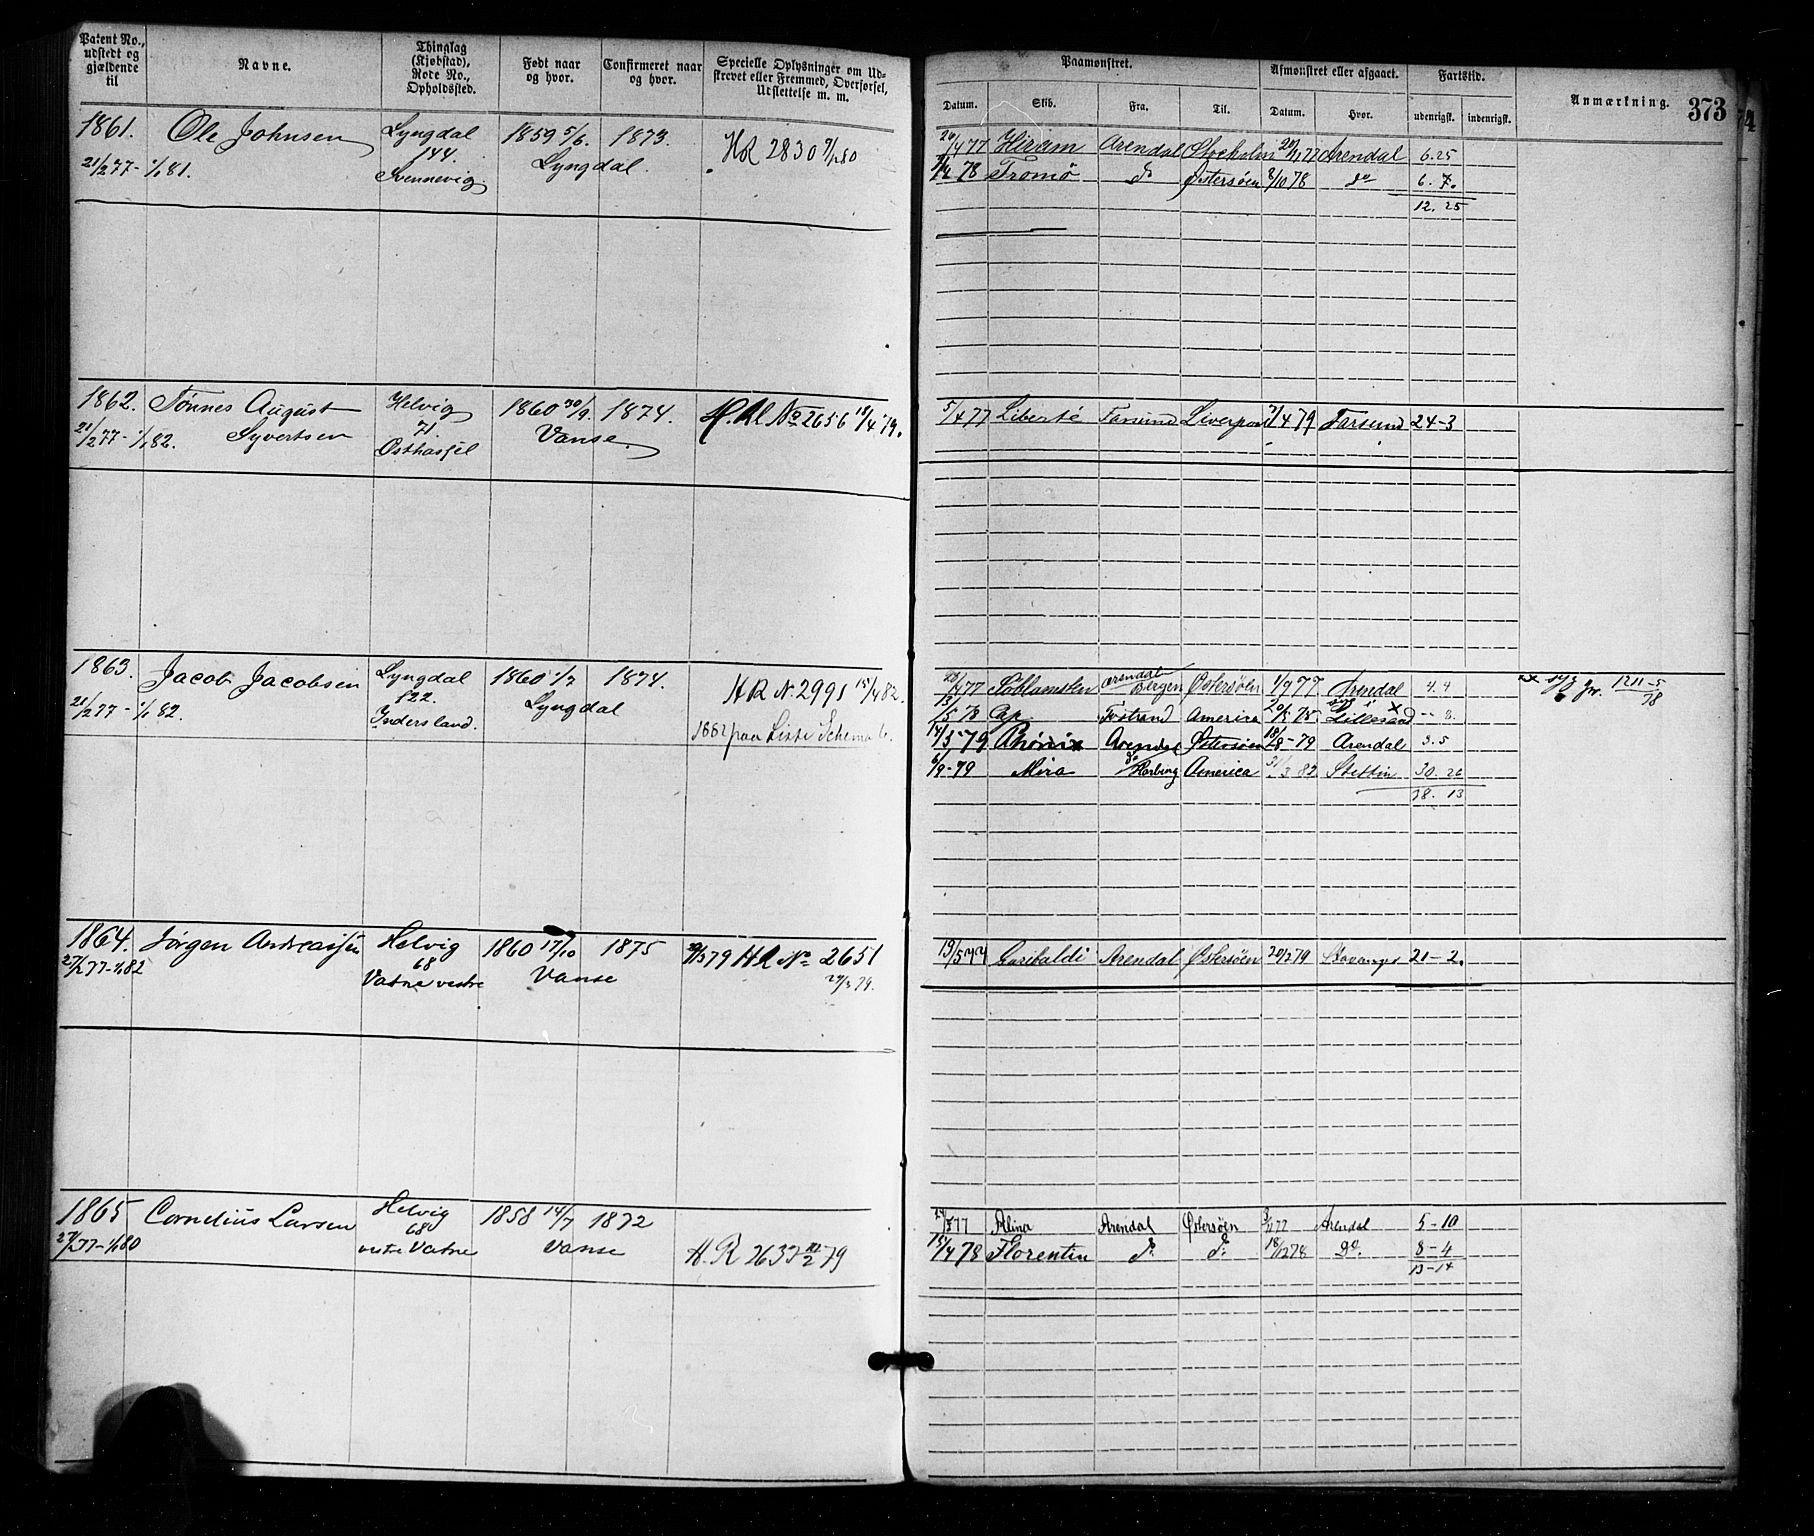 Patent No., udstedt og gjældende til
Navne.
Thinglag (Kjøbstad), Rode No., Opholdssted.
Født naar og hvor.
Confirmeret naar og hvor.
Specielle Oplysninger om Udskrevet eller Fremmed, Overførsel, Udslettelse m. m.
Paamønstret.
Afmønstret eller afgaaet.
Fartstid.
Anmærkning.
373
Datum. Skib. Fra. Til. Datum. Hvor. udenrigsk. indenrigsk.
1861. Ole Johnsen Lyngdal 1859 5/6. 1873.
144. Lyngdal. HR 2830
21/2 77 - 1/1 81. Svennevig.
26/4 77 Hiram Arendal Stockolm Arendal 6.25
78 Tromö do Østersøen 8/10 78 do 6. 7.
12. 25
1862. Tönnes August Helvig 1860 30/9. 1874. No 2656 18/4 79.
21/2 77 - 1/1 82. Syvertsen 71 Vanse.
Østhassel
5/4 77 Liberté Farsund Liverpool 7/4 79 Farsund 24-3
1863. Jacob Jacobsen Lyngdal 1860 1/7 1874. HR No. 2991 15/4 82.
21/2 77 - 1/1 82. 122. Lyngdal
Indersland.
1882 paa Liste Schema
77 Arendal Bergen Østersøen 1/9 77 Arendal 4.4
13/5 78 Cap America Lillesand 8.
14/3 79 Phönix Arendal Østersøen 18/8-79 Arendal 3.5
6/9-79 Mira do Harburg America 82 Stettin 30. 26
38. 13
1211-5
78
1864. Jörgen Andreassen Helvig 1860 17/10 1875 79 HR No 2651
27/2 77-1/1 82 68 Vanse 79.
Vatne vestre
19/5 77 Garibaldi Arendal Østersøen 20/2 79 Stavanger 21-2.
1865 Cornelius Larsen Helvig 1858 14/7 1872
27/2 77-1/1 80 68 Vanse
vestre Vatne H. R 2637 79
77 Alina Arendal Østersøen 77 Arendal 5-10
15/4 78 Florentin do do 18/12 78 Do. 8-4
13-14